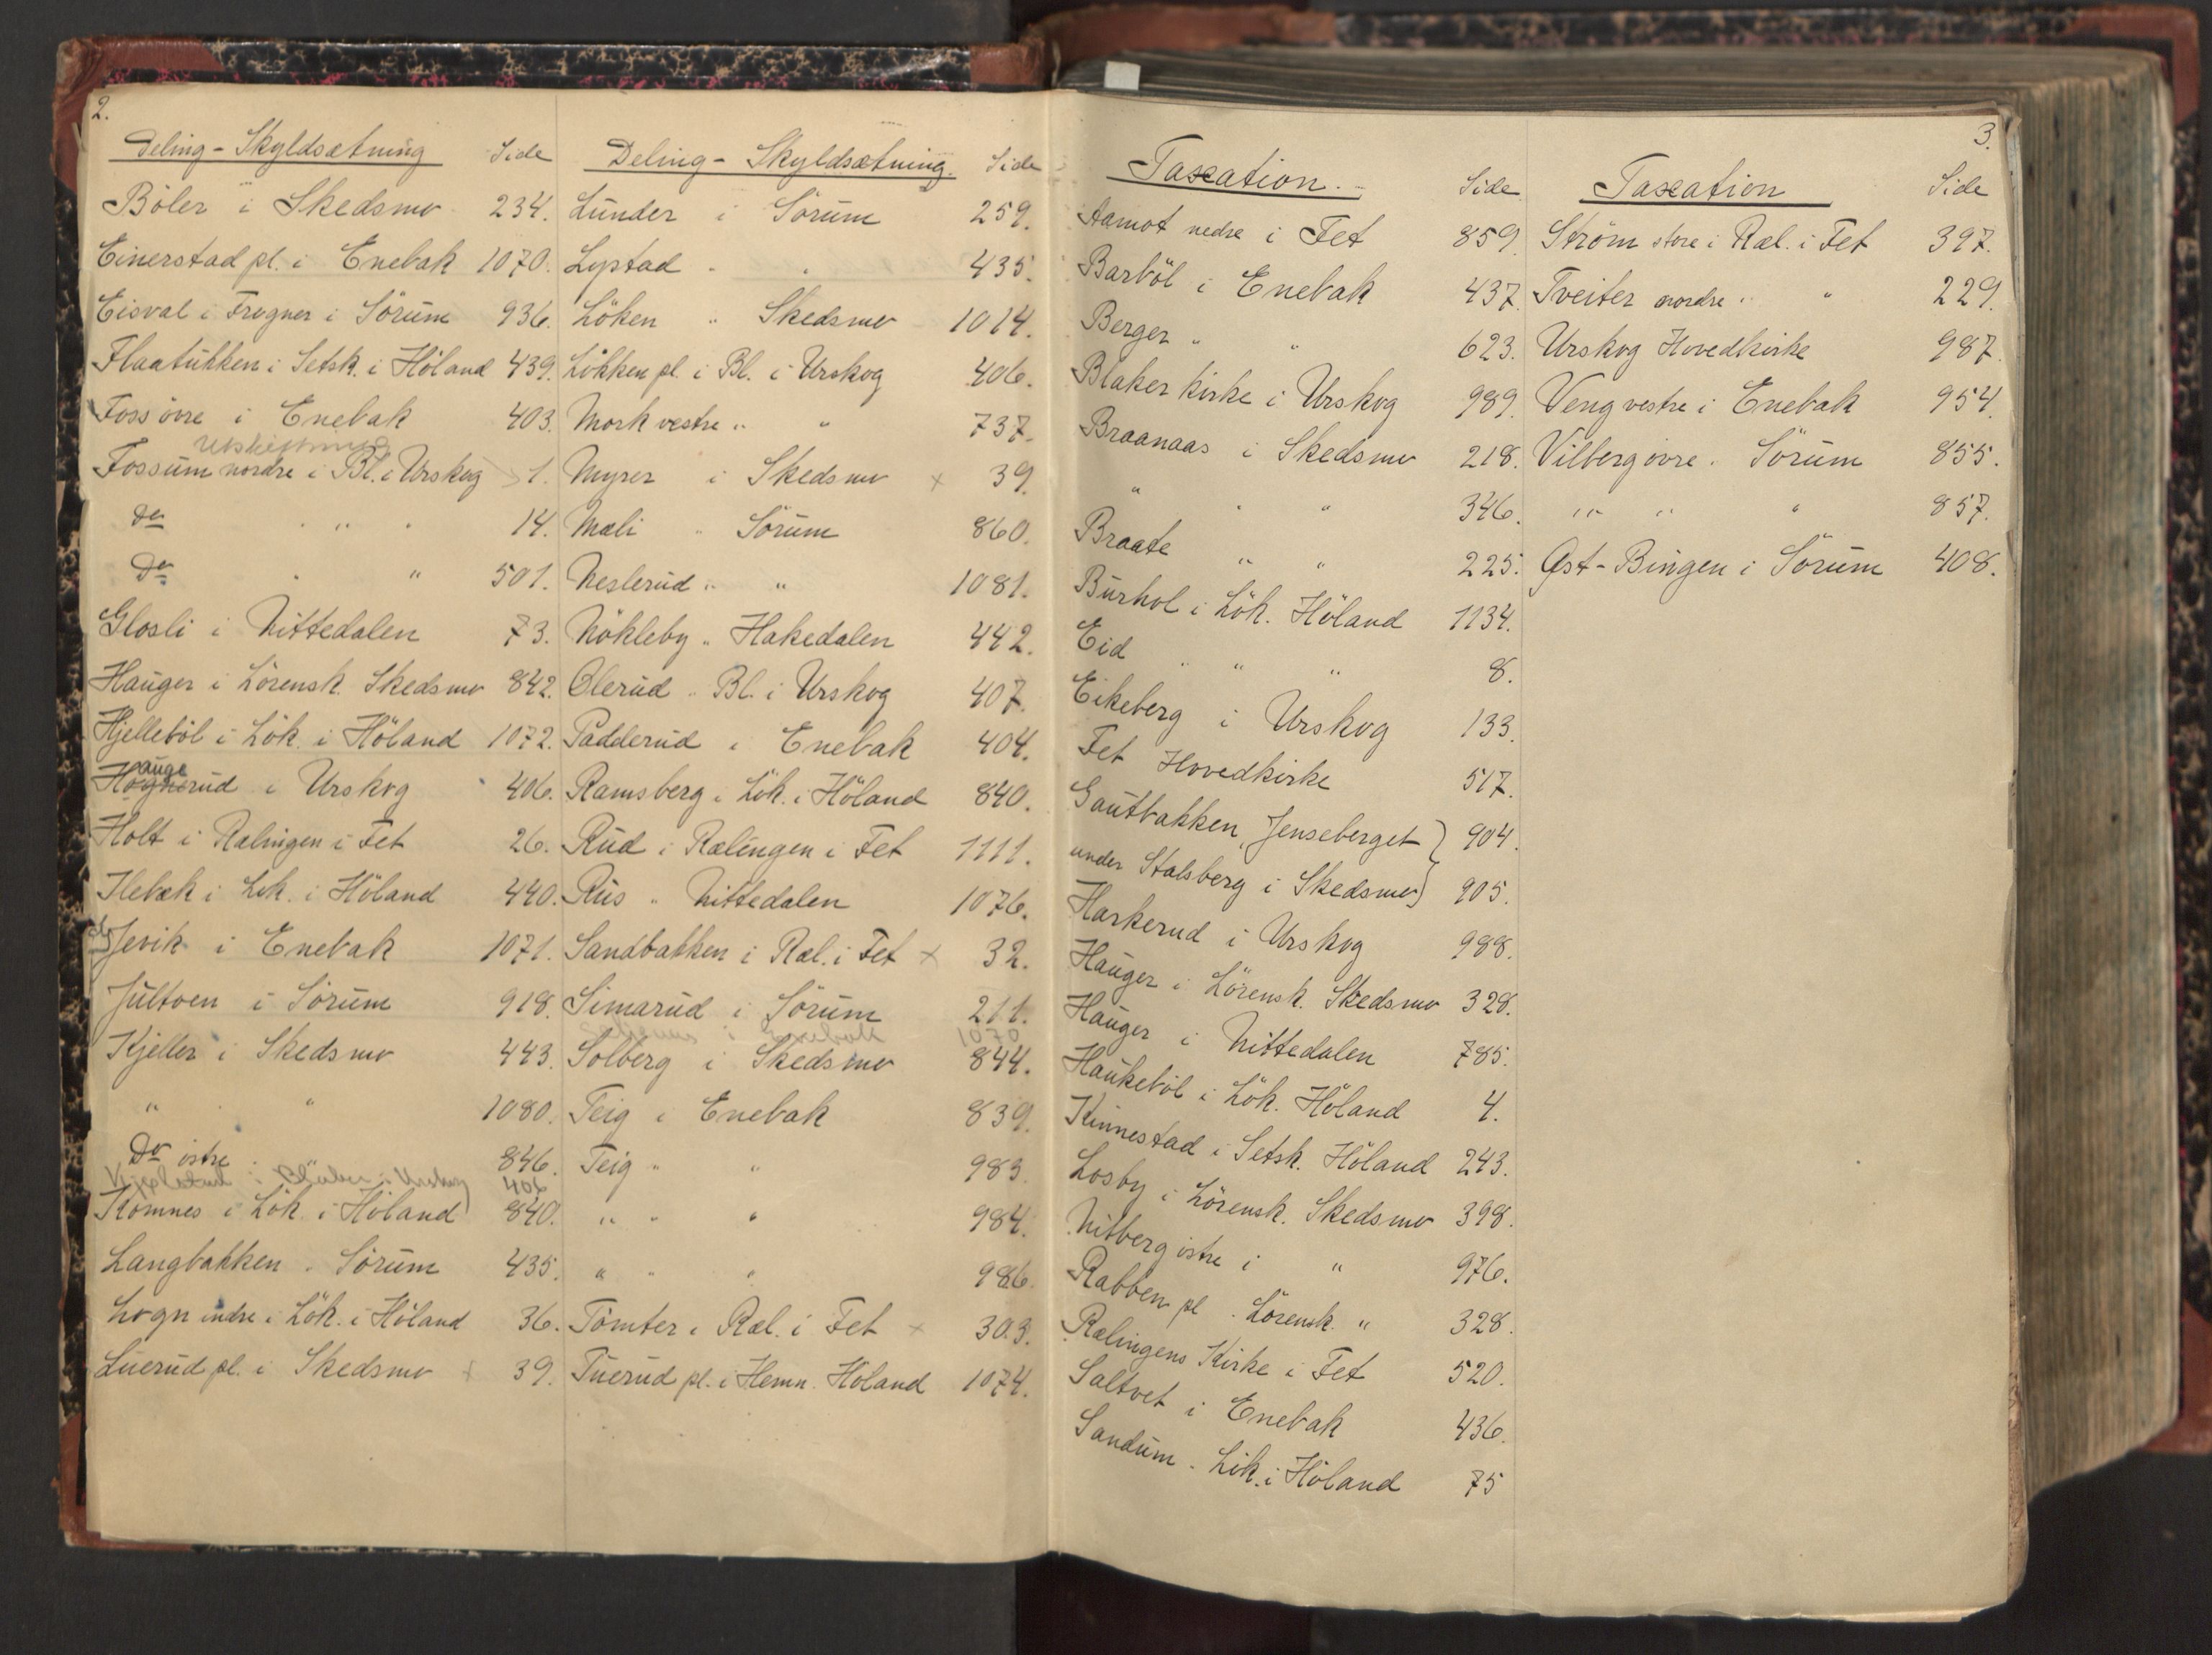 2.
Deling - Skyldsætning Side
Böler i Skedsmo 234.
Einerstad pl. i Enebak 1070.
Eisval i Frogner i Sörum 936.
Flaatukken i Setsk. i Höland 439.
Foss övre i Enebak 403.
Utskiftning
Fossum nordre i Bl. i Urskog 1.
Do " " 14.
Do " " 501.
Glosli i Nittedalen 73.
Hauger i Lörensk. Skedsmo 842.
Hjelleböl i Lök. i Höland 1072.
auge
Högnerud i Urskog 406.
Holt i Rælingen i Fet 26.
Ilebæk i Lök. i Höland 440.
Jevik i Enebak 1071.
Jultoen i Sörum 918.
Kjeller i Skedsmo 443.
" " 1080.
Do östre " " 846.
i Blaker i Urskog 406
Komnes i Lök. i Höland 840.
Langbakken " Sörum 435.
Logn indre i Lök. i Höland 36.
Luerud pl. i Skedsmo x 39.
Deling - Skyldsætning. Side
Lunder i Sörum 259.
Lystad " " 435.
Löken " Skedsmo 1014.
Lökken pl. i Bl. i Urskog 406.
Mork vestre " " 737.
Myrer i Skedsmo x 39.
Mæli " Sörum 860.
Neslerud " " 1081.
Nökleby " Hakedalen 442.
Olerud " Bl. i Urskog 407.
Padderud i Enebak 404.
Ramsberg i Lök. i Höland 840.
Rud i Rælingen i Fet 1111.
Rus " Nittedalen 1076.
Sandbakken i Ræl. i Fet x 32.
Simarud i Sörum 211.
i Enebak 1070
Solberg i Skedsmo 844.
Teig i Enebak 839.
Teig " " 983.
" " " 984.
" " " 986.
Tomter i Ræl. i Fet x 303.
Tuerud pl. i Hemn. Höland 1074.
Taxation. Side
Aamot nedre i Fet 859.
Barböl i Enebak 437.
Berger " " 623.
Blaker kirke i Urskog 989.
Braanaas i Skedsmo 218.
" " " 346.
Braate " " 225.
Burhol i Lök. Höland 1134.
Eid " " " 8.
Eikeberg i Urskog 133.
Fet Hovedkirke 517.
Gautbakken, Jenseberget } 904.
under Stalsberg i Skedsmo } 905.
Harkerud i Urskog 988.
Hauger i Lörensk. Skedsmo 328.
Hauger i Nittedalen 785.
Haukeböl i Lök. Höland 4.
Kinnestad i Setsk. Höland 243.
Losby i Lörensk. Skedsmo 398.
Nitberg östre i " 976.
Rabben pl. Lörensk. " 328.
Rælingens Kirke i Fet 520.
Saltvet i Enebak 436.
Sandum " Lök. i Höland 75
3.
Taxation Side
Ström store i Ræl. i Fet 397.
Tveiter nordre " " 229.
Urskog Hovedkirke 987.
Veng vestre i Enebak 954.
Vilberg övre " Sörum 855.
" " " " 857.
Øst-Bingen i Sörum 408.